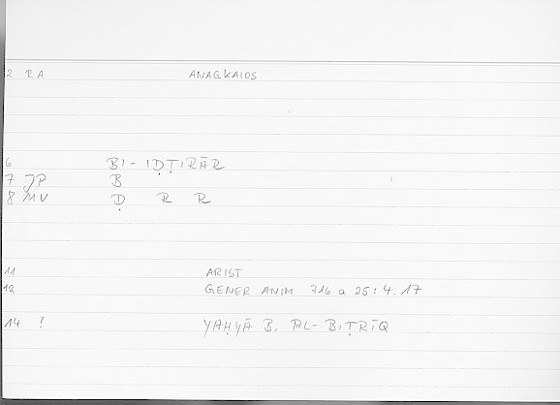 2 RA ANAGKAIOS
6 BI-IḌṬIRĀR
7 JP B
8 MV Ḍ R R
11 ARIST
12 GENER ANIM 716 a 25: 4.17
14 ! YAḤYĀ B. AL-BIṬRĪQ